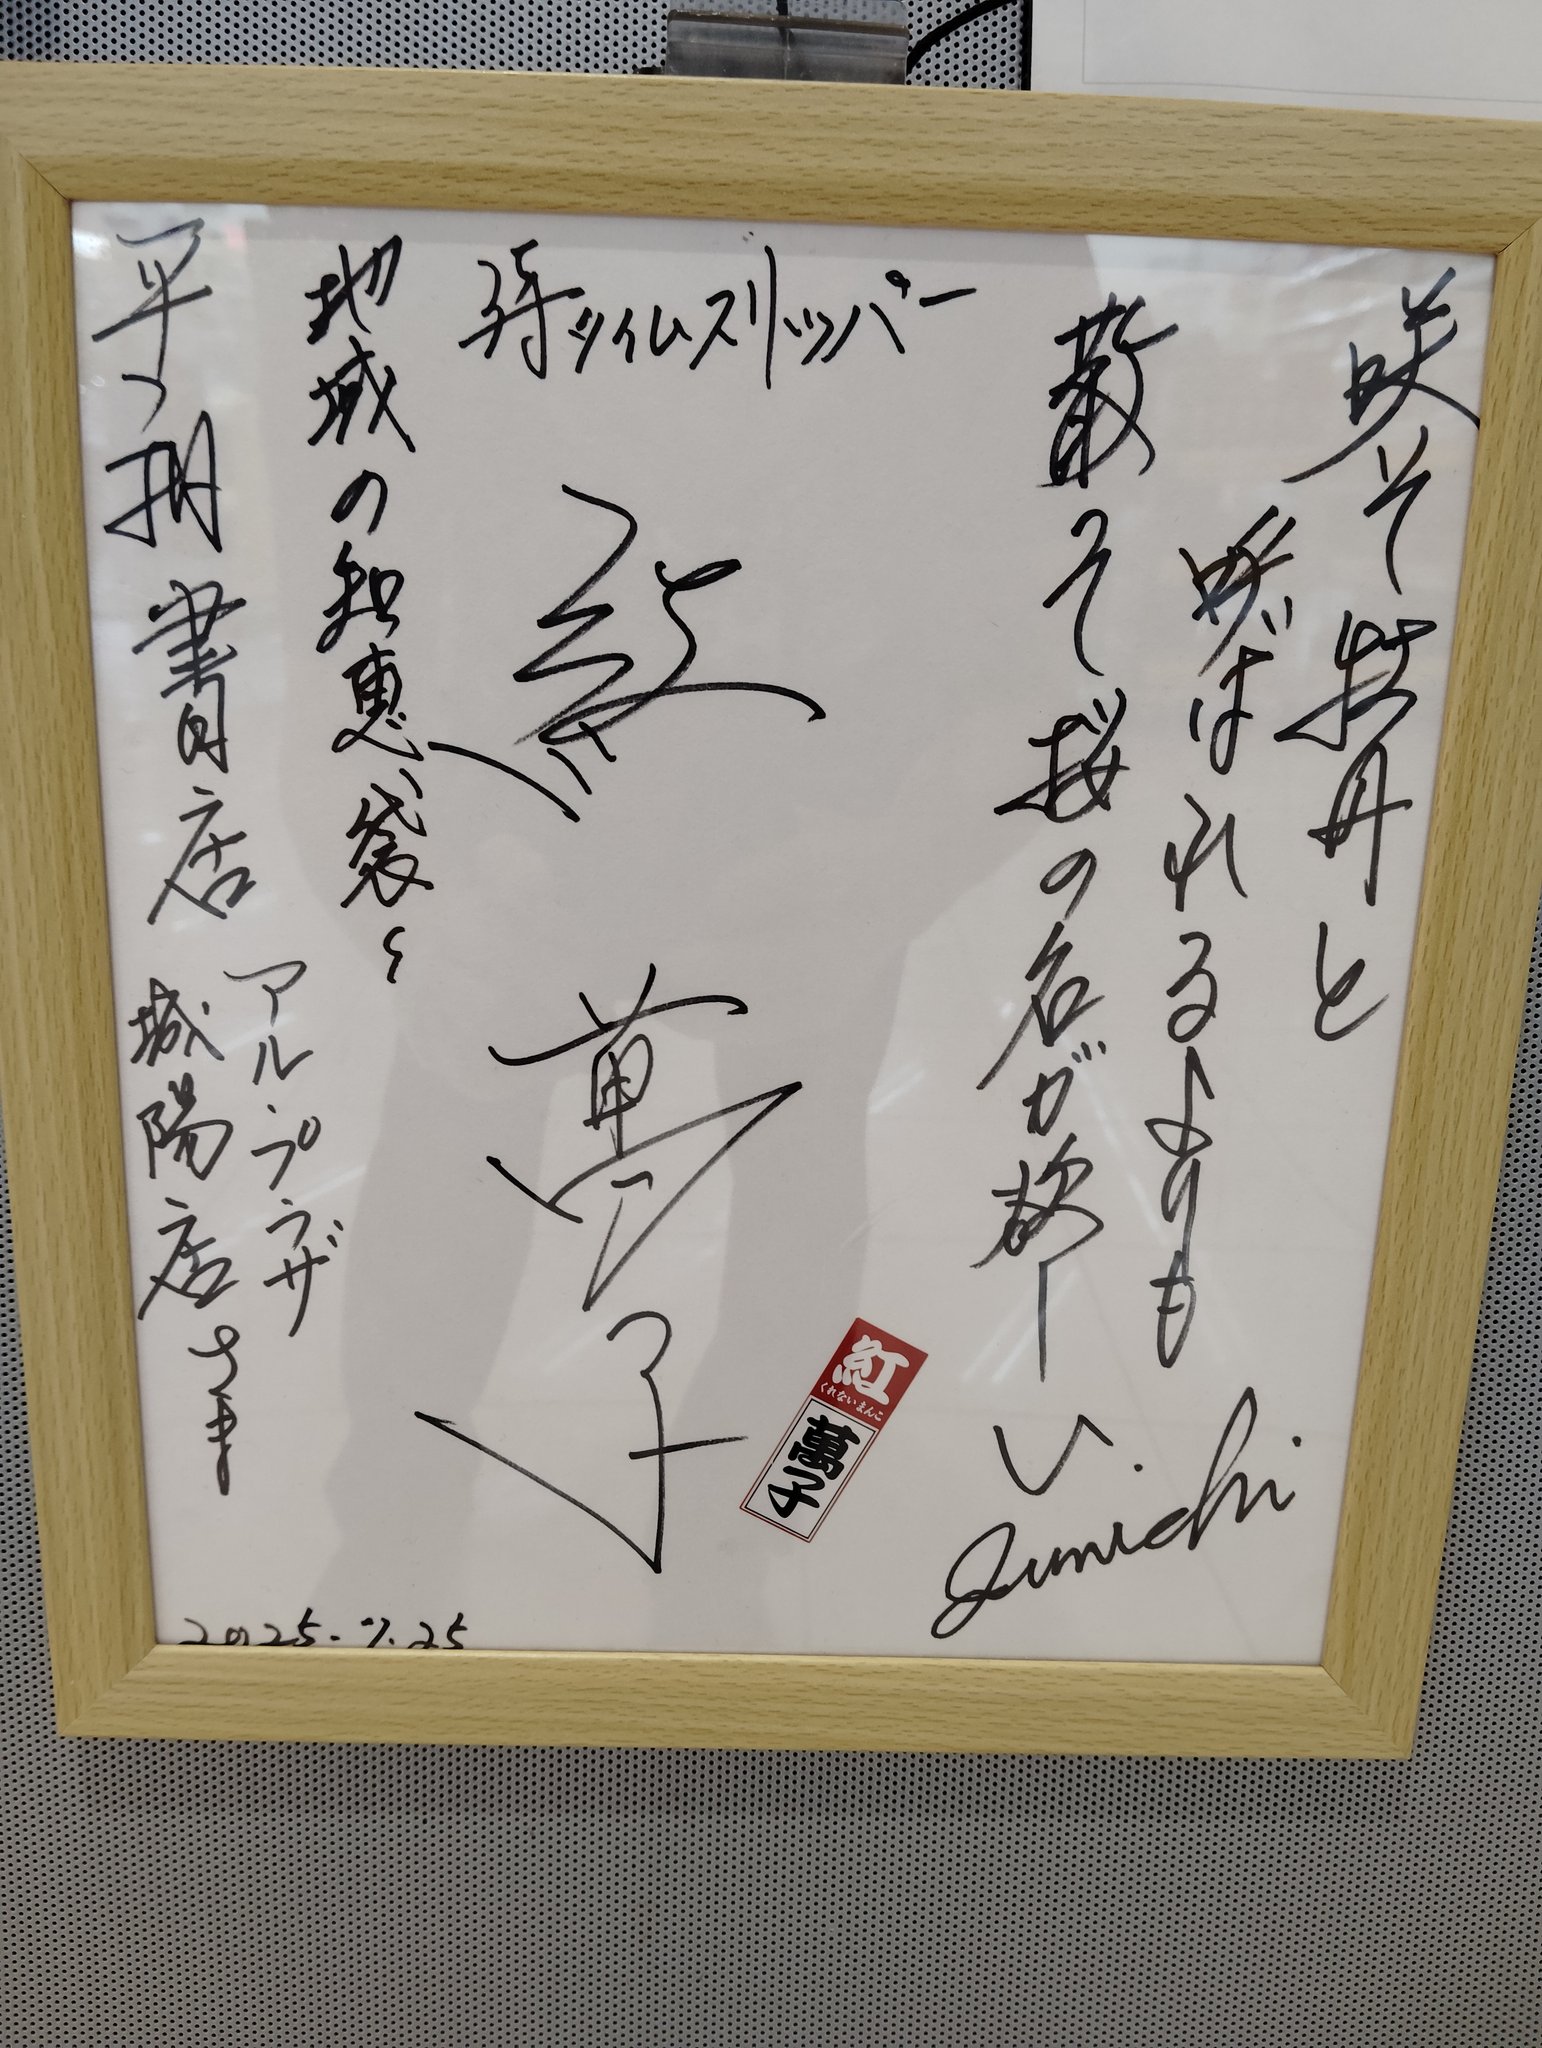 咲そ牡丹と
呼ばれるよりも
散そ桜の名が欲しい
Junichi
侍タイムスリッパー
紅萬子
紅
くれないまんこ
萬子
地域の知恵袋〜
平和書店
アルプラザ
城陽店さま
2025.7.25